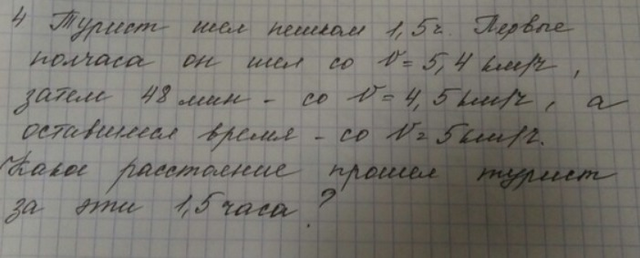 4 Турист шел пешком 1,5 ч. Первые
полчаса он шел со V = 5,4 км/ч,
затем 48 мин - со V = 4,5 км/ч, а
оставшееся время - со V = 5 км/ч.
Какое расстояние прошел турист
за эти 1,5 часа?